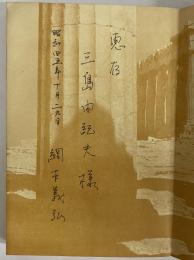 恵存
三島由紀夫様
昭和四五年十月二九日
綱平義弘